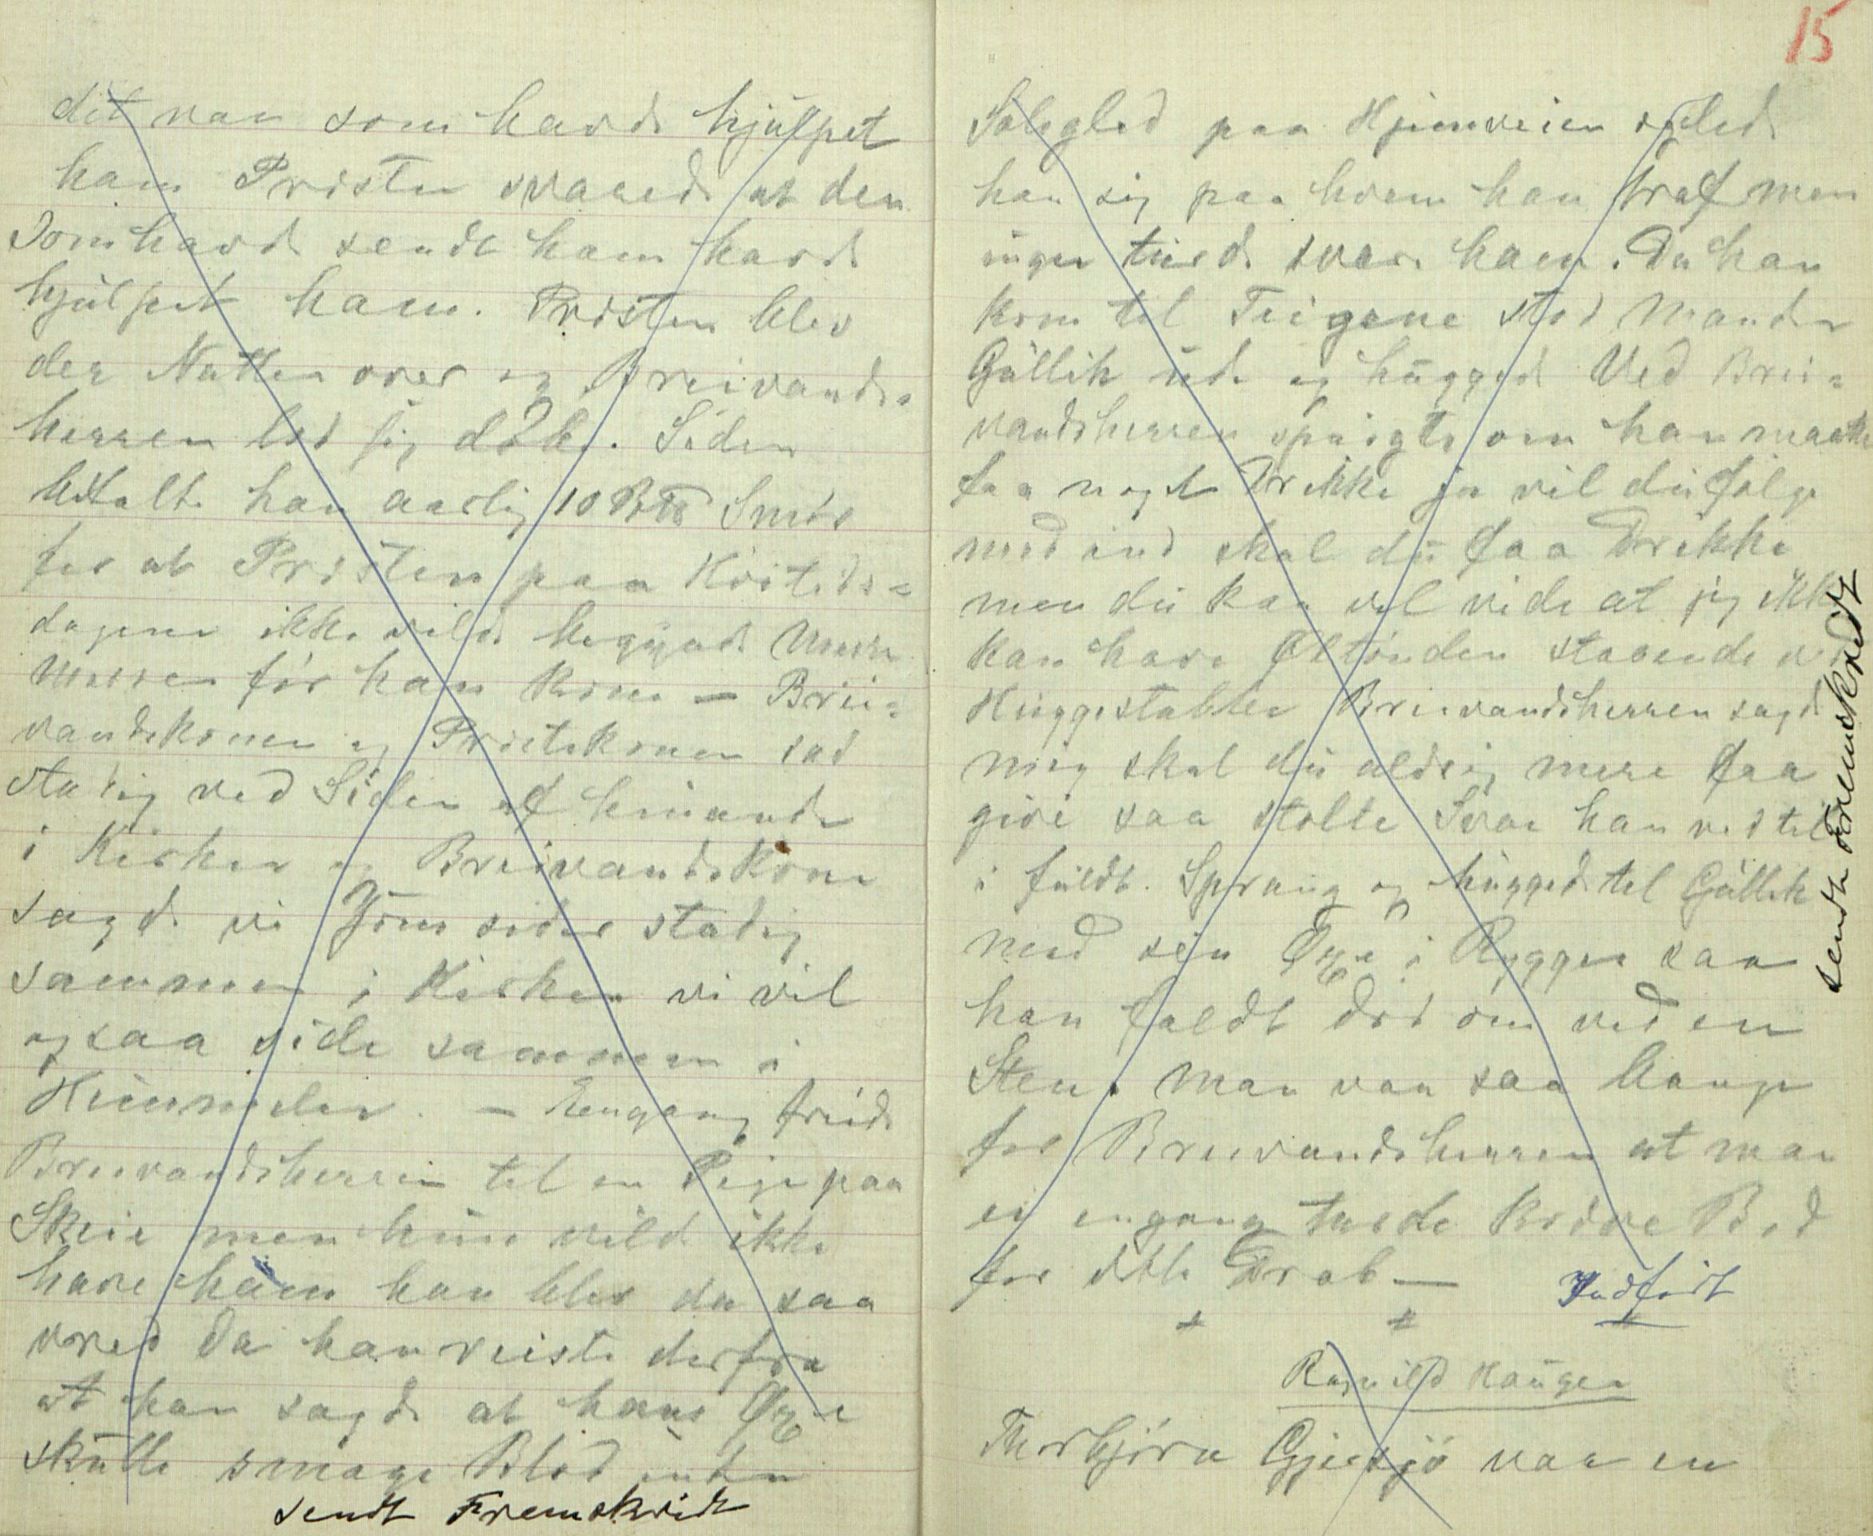 det var som havde hjulpet
ham Præsten svarede at den
som havde sendt ham havde
hjulpet ham. Præsten blev
der Natten over og Breivands-
herren lod sig døbe. Siden
betalte han aarlig 10 Smør
for at Præsten paa Høitids-
dagene ikke vilde begynde
Messen før han kom — Brei-
vandskonen og Præstekonen sad
stadig ved Siden af hinanden
i Kirken og Breivandskone
sagde vi som sidder stadig
sammen i Kirken vi vil
ogsaa side sammen i
Himmelen. — Engang friede
Breivandsherren til en Pige paa
Skeie men hun vilde ikke
have ham han blev da saa
vred da han reiste derfra
at han sagde at hans Øxe
skulle smage Blod inden
sendt Fremskridt
15
Soleglad paa Hjemveien
han sig paa hvem han traf men
ingen turde svare ham. Da han
kom til Teigene stod Manden
Gullik ude og huggede Ved Brei-
vandsherren spurgte om han maatte
faa noget Drikke ja vil du følge
med ind skal du faa Drikke
men du kan vel vide at jeg ikke
kan have Øltønden staaende ved
Huggestabben Breivandsherren sagde
mig skal du aldrig mere faa
give saa stolte Svar han red til
i fuldt Sprang og huggede til Gullik
med sin Øxe i Ryggen saa
han faldt død om ved en
Sten. Man var saa bange
for Breivandsherren at man
ei engang turde kræve Bod
for dette Drab —
Indført
Ragnild Haugen
Thorbjørn Gjersjø var en
sendt Fremskridt